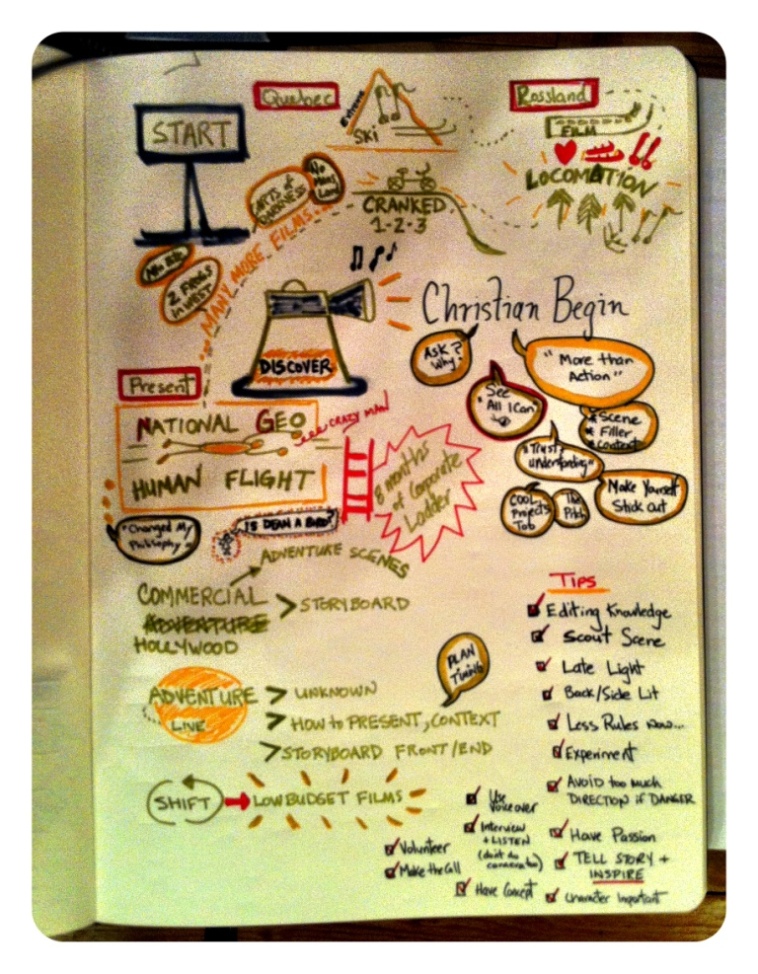 START
Quebec
Extreme
SKI
Rossland
FILM
LOCOMOTION
CRANKED
1-2-3
NO MANS LAND
ARTS of DARKNESS
MANY MORE FILMS
2 FROGS
IN WEST
DISCOVER
Christian Begin
ASK?
Why.
"More than
Action"
See
"All I Can"
* Scene
* Filler
* Context
"Trust/
Understanding"
COOL
Projects
Tab
The
Pitch
Make Yourself
Stick out
Present
NATIONAL GEO
HUMAN FLIGHT
CRAZY MAN
8 months
of Corporate
Ladder
"Changed My
Philosophy"
IS DEAN A BIRD?
ADVENTURE SCENES
COMMERCIAL
> STORYBOARD
ADVENTURE
HOLLYWOOD
PLAN
TIMING
ADVENTURE
LIVE
> UNKNOWN
> HOW to PRESENT, CONTEXT
> STORYBOARD FRONT/END
SHIFT
LOW BUDGET FILMS
TIPS
Editing Knowledge
Scout Scene
Late Light
Back/Side Lit
Less Rules Now...
Experiment
AVOID too much
DIRECTION IF DANGER
Have Passion
TELL STORY +
INSPIRE
Character Important
Use
Voice over
Interview
+ LISTEN
(don't do
camera too)
Have Concept
Volunteer
Make the Call